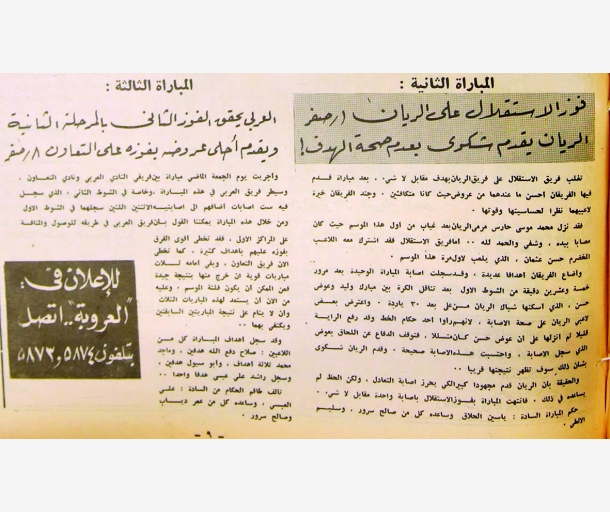 المباراة الثانية :
فوز الاستقلال على الريان ١/صفر
الريان يقدم شكوى بعدم صحة الهدف!
تغلب فريق الاستقلال على فريق الريان بهدف مقابل لا شيء . بعد مباراة قدم
فيها الفريقان احسن ما عندهما من عروض حيث كانا متكافئين . وجند الفريقان خيرة
لاعبيهما نظرا لحساسيتها وقوتها .
فقد نزل محمد موسى حارس مرمى الريان بعد غياب من اول هذا الموسم حيث كان
مصابا بيده . وشفي والحمد لله .. اما فريق الاستقلال فقد اشترك معه اللاعب
المخضرم حسن عثمان . الذي يلعب لاول مرة هذا الموسم .
واضاع الفريقان اهدافا عديدة . وقد سجلت اصابة المباراة الوحيدة بعد مرور
خمسة وعشرين دقيقة من الشوط الاول بعد تناقل الكرة بين مبارك وليد وعوض
حسن . الذي اسكنها شباك الريان من على بعد ٣٠ ياردة . واعترض بعض
لاعبي الريان على صحة الاصابة . لانهم رأوا احد حكام الخط وقد رفع الراية
قليلا ثم انزلها على ان عوض حسن كان متسللا . فتوقف الدفاع عن اللحاق بعوض
الذي سجل الاصابة . واحتسبت هذه الاصابة صحيحة . وقدم الريان شكوى
بشأن ذلك سوف تظهر نتيجتها قريبا ..
والحقيقة بأن الريان قدم مجهودا كبيرا لكي يحرز اصابة التعادل . ولكن الحظ لم
يساعده في ذلك . فانتهت المباراة بفوز الاستقلال باصابة واحدة مقابل لا شيء .
حكم المباراة السادة : ياسين الحلاق وساعده كل من صالح سرور . وسليم
المباراة الثالثة :
العربي يحقق الفوز الثاني بالمرحلة الثانية
ويقدم أحلى عروضه بفوزه على التعاون ٨/صفر
واجريت يوم الجمعة الماضي مباراة بين فريقي النادي العربي ونادي التعاون .
وسيطر فريق العربي في هذه المباراة . وخاصة في الشوط الثاني . الذي سجل
فيه ست اصابات اضافهم الى اصابتيه الاثنتين اللتين سجلهما في الشوط الاول
ومن خلال هذه المباراة يمكننا القول بان فريق العربي في طريقه للوصول والمنافسة
على المراكز الاولى . فقد تخطى اقوى الفرق
بفوزه عليهم باهداف كثيرة . وكما تخطى
الان فريق التعاون . وبقي امامه ثلاث
مباريات قوية ان خرج منها بنتيجة جيدة
فمن الممكن ان يكون فلتة الموسم . وعليه
من الان ان يستعد لهذه المباريات الثلاث
وان لا ينام على نتيجة المباريتين السابقتين
ويكتفي بهما ..
وقد سجل اهداف المباراة كل من
اللاعبين : صلاح دفع الله هدفين . وماجد
محمد ثلاثة اهداف . وابو سيول هدفين .
وسجل راشد علي عيسى هدفا واحدا ..
تألف طاقم الحكام من السادة : علي
العبسي . وساعده كل من عمر دياب
وصالح سرور .
للإعلان في :
"العروبة" .. اتصل
بتلفون ٥٨٧٤ و ٥٨٧٣
- ٩ -